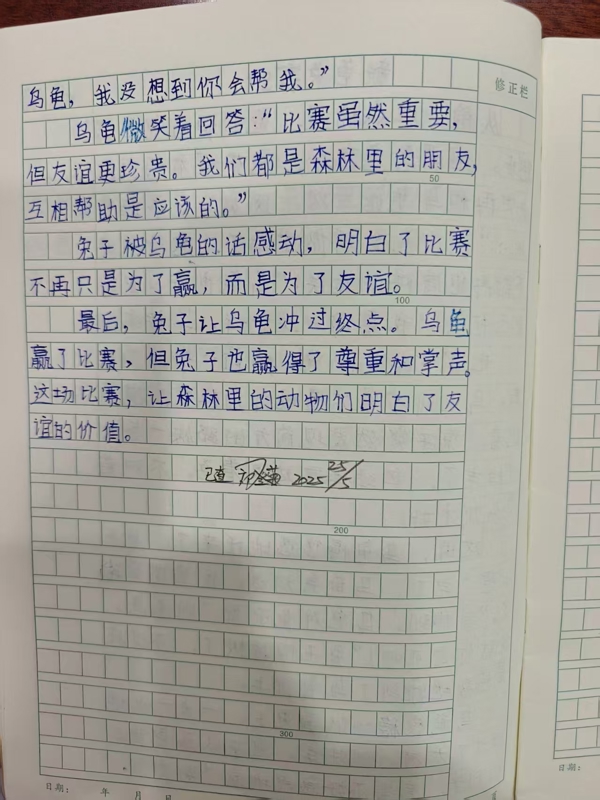 修正栏
乌龟，我没想到你会帮我。”
乌龟微笑着回答：“比赛虽然重要，
但友谊更珍贵。我们都是森林里的朋友，
50
互相帮助是应该的。”
兔子被乌龟的话感动，明白了比赛
不再只是为了赢，而是为了友谊。
100
最后，兔子让乌龟冲过终点。乌龟
赢了比赛，但兔子也赢得了尊重和掌声。
这场比赛，让森林里的动物们明白了友
谊的价值。
已查 2025 25/5
200
300
日期： 年 月 日
日期：